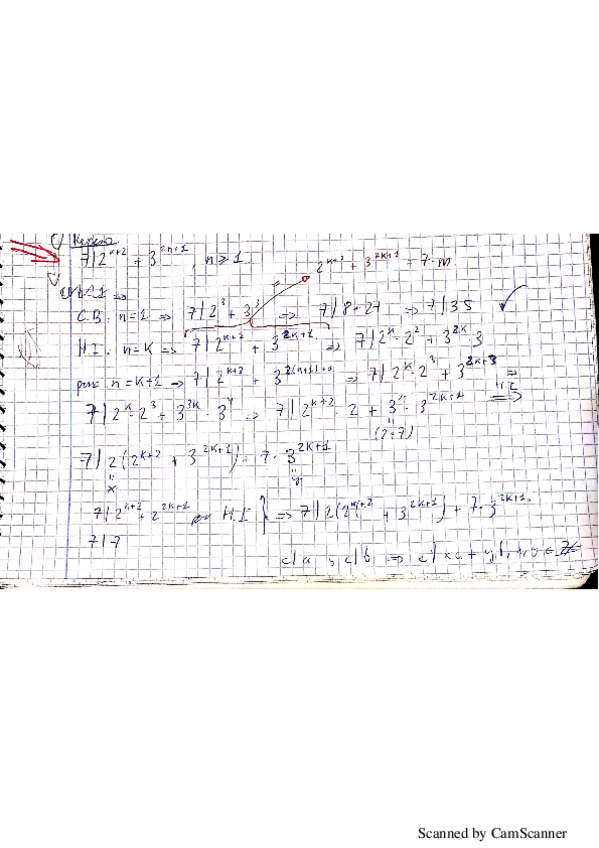 7 | 2^{n+2} + 3^{2n+1}, n ≥ 1
2^{k+2} + 3^{2k+1} = 7·m
C.B: n=1 ⇒ 7 | 2^3 + 3^3 ⇒ 7 | 8+27 ⇒ 7 | 35 ✓
H.I: n=k ⇒ 7 | 2^{k+2} + 3^{2k+1} ⇒ 7 | 2^k · 2^2 + 3^{2k} · 3
n=k+1 ⇒ 7 | 2^{k+3} + 3^{2(k+1)+1} ⇒ 7 | 2^k · 2^3 + 3^{2k+3} ⇒
7 | 2^k · 2^3 + ⇒ 7 | 2^{k+2} · 2 + 3^2 · 3^{2k+1} H.I ⇒
(2+7)
7 | 2(2^{k+2} + 3^{2k+1}) + 7 · 3^{2k+1}
x y
7 | 2^{k+2} + 2^{2k+1} por H.I } ⇒ 7 | 2(2^{k+2} + 3^{2k+1}) + 7·3^{2k+1}
7 | 7
c | a, c | b ⇒ c |
Scanned by CamScanner